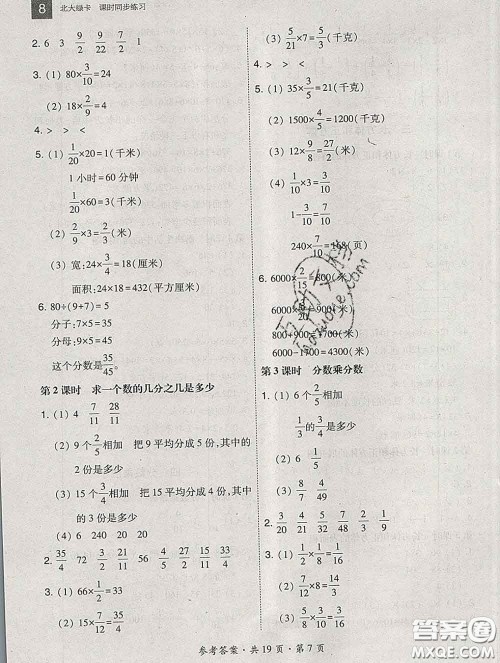 8 北大绿卡 课时同步练习
2. 6 3 9/2 9/22 7/2 1
3. (1) 80×3/10=24
(2) 18×2/9=4
4. > > <
5. (1) 1/20×20=1(千米)
1小时=60分钟
1/20×60=3(千米)
(2) 2/9×3=2/3(米)
(3) 宽:24×3/4=18(厘米)
面积:24×18=432(平方厘米)
6. 80÷(9+7)=5
分子:7×5=35
分母:9×5=45
这个分数是35/45。
第2课时 求一个数的几分之几是多少
1. (1) 4 7/11 28/11
(2) 9个2/5相加 把9平均分成5份,其中的
2份是多少
(3) 15个3/4相加 把15平均分成4份,其中
的3份是多少
(4) 6 240 20 20
2. 35/4 72 33/2 56 27/4 21/2 15/11 33/4
3. (1) 66×1/2=33
(2) 44×3/4=33
(3) 5/21×7=5/3(千克)
4. > < <
5. (1) 35×3/5=21(千克)
(2) 1500×4/5=1200(千克)
(3) 12×9/8=27/2(米)
(4) 1/10×3=3/10
1-3/10=7/10
240×7/10=168(页)
6. 6000×2/15=800(米)
6000×3/20=900(米)
800+900=1700(米)
6000-1700=4300(米)
第3课时 分数乘分数
1. (1) 6个2/5相加
(2) 6 1/15
2. 3/20 4/21 5/48 8/15 4/49 2/27
3. (1) 1/8×1/7=1/56
(2) 1/9×1/9=1/81
参考答案·共19页·第7页
答案圈
MXQE.COM